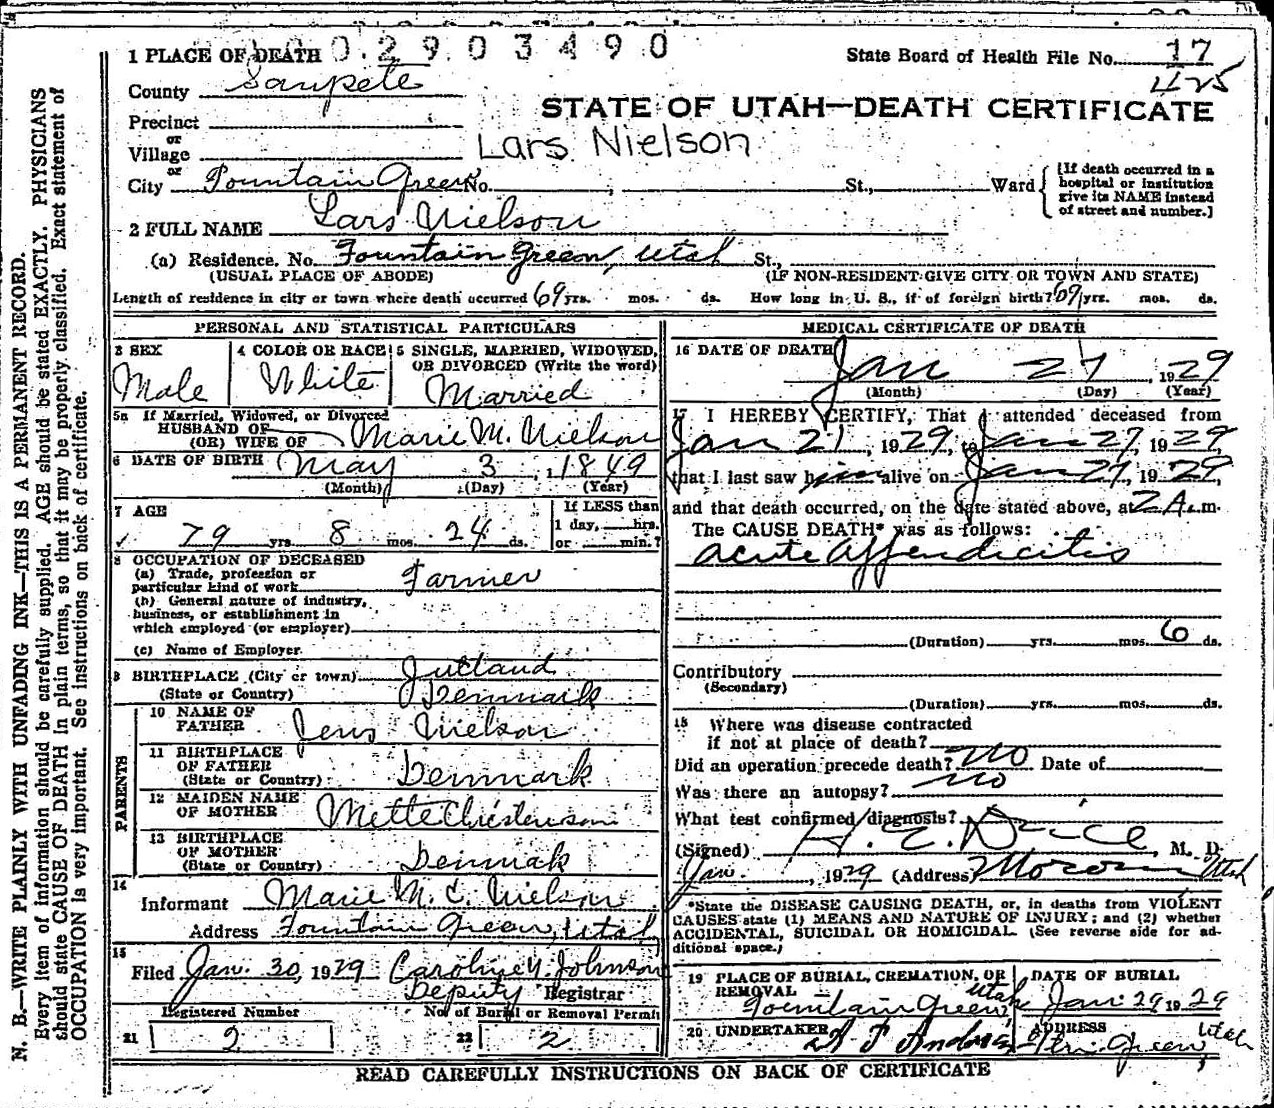 N. B.—WRITE PLAINLY WITH UNFADING INK—THIS IS A PERMANENT RECORD.
Every item of information should be carefully supplied. AGE should be stated EXACTLY. PHYSICIANS
should state CAUSE OF DEATH in plain terms, so that it may be properly classified. Exact statement of
OCCUPATION is very important. See instructions on back of certificate.
1 PLACE OF DEATH 0 0 2 9 0 3 4 9 0
State Board of Health File No. 17
425
County Sanpete
STATE OF UTAH—DEATH CERTIFICATE
Precinct
or
Village
Lars Nielson
or
City Fountain Green No. , St., Ward
[If death occurred in a
hospital or institution
give its NAME instead
of street and number.]
2 FULL NAME Lars Nielson
(a) Residence. No. Fountain Green, Utah St.,
(USUAL PLACE OF ABODE) (IF NON-RESIDENT GIVE CITY OR TOWN AND STATE)
Length of residence in city or town where death occurred 69 yrs. mos. ds. How long in U. S., if of foreign birth? 69 yrs. mos. ds.
PERSONAL AND STATISTICAL PARTICULARS
3 SEX
Male
4 COLOR OR RACE
White
5 SINGLE, MARRIED, WIDOWED,
OR DIVORCED (Write the word)
Married
5a If Married, Widowed, or Divorced
HUSBAND OF
(OR) WIFE OF Marie M. Nielson
6 DATE OF BIRTH May 3, 1849
(Month) (Day) (Year)
7 AGE
79 yrs. 8 mos. 24 ds.
If LESS than
1 day, hrs.
or min.?
8 OCCUPATION OF DECEASED
(a) Trade, profession or
particular kind of work Farmer
(b) General nature of industry,
business, or establishment in
which employed (or employer)
(c) Name of Employer
9 BIRTHPLACE (City or town) Jutland
(State or Country) Denmark
PARENTS
10 NAME OF
FATHER Jens Nielson
11 BIRTHPLACE
OF FATHER
(State or Country) Denmark
12 MAIDEN NAME
OF MOTHER Mette Christensen
13 BIRTHPLACE
OF MOTHER
(State or Country) Denmark
14
Informant Marie M. C. Nielson
Address Fountain Green, Utah
15
Filed Jan. 30, 1929 Caroline Y. Johnson
Deputy Registrar
Registered Number No. of Burial or Removal Permit
21 2 22 2
MEDICAL CERTIFICATE OF DEATH
16 DATE OF DEATH
Jan 27, 1929
(Month) (Day) (Year)
17 I HEREBY CERTIFY, That I attended deceased from
Jan 21, 1929, to Jan 27, 1929,
that I last saw him alive on Jan 27, 1929,
and that death occurred, on the date stated above, at 2 A. m.
The CAUSE DEATH* was as follows:
acute appendicitis
(Duration) yrs. mos. 6 ds.
Contributory
(Secondary)
(Duration) yrs. mos. ds.
18 Where was disease contracted
if not at place of death?
Did an operation precede death? no Date of
Was there an autopsy? no
What test confirmed diagnosis?
(Signed) H. E. , M. D.
Jan. , 1929 (Address) Moroni Utah
*State the DISEASE CAUSING DEATH, or, in deaths from VIOLENT
CAUSES state (1) MEANS AND NATURE OF INJURY; and (2) whether
ACCIDENTAL, SUICIDAL OR HOMICIDAL. (See reverse side for ad-
ditional space.)
19 PLACE OF BURIAL, CREMATION, OR
REMOVAL
Fountain Green, Utah
DATE OF BURIAL
Jan 29 1929
20 UNDERTAKER
ADDRESS
Ftn. Green, Utah
READ CAREFULLY INSTRUCTIONS ON BACK OF CERTIFICATE